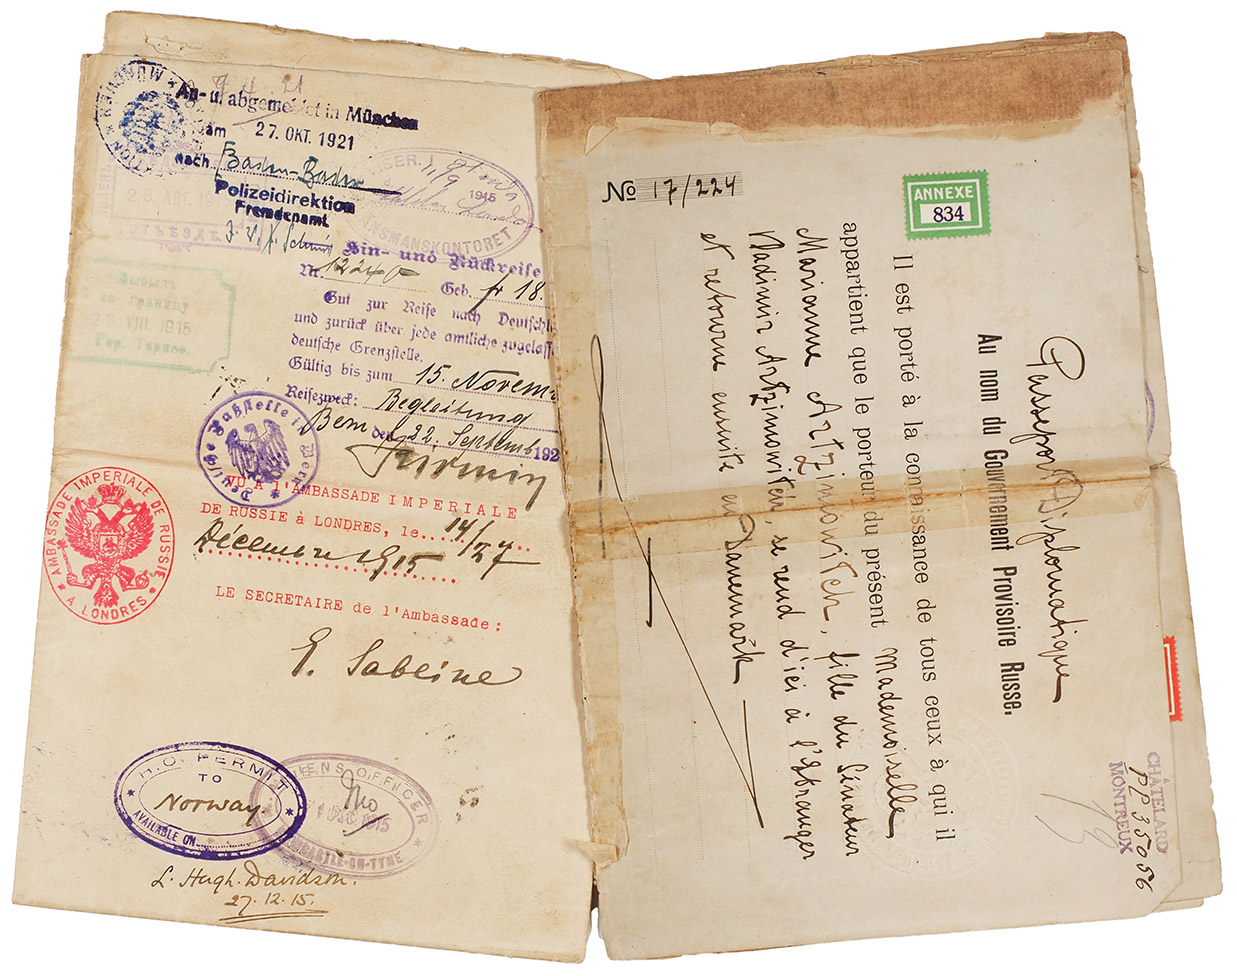 An- u. abgemeldet in München
am 27. OKT. 1921
nach Baden-Baden
Polizeidirektion
Fremdenamt
1915
ANSMANSKONTORET
Hin- und Rückreise
Nr. 12240 Geb. fr 18.
Gut zur Reise nach Deutschl
und zurück über jede amtliche zugelass
deutsche Grenzstelle.
Gültig bis zum 15. Novem
Reisezweck: Begleitung
Bern den 22. Septemb 192
Deutsche Paßstelle in Bern
за границу
29. VIII. 1915
VU A L'AMBASSADE IMPERIALE
DE RUSSIE à LONDRES, le 14/27
Décembre 1915
LE SECRETAIRE de l'Ambassade:
E. Sabline
AMBASSADE IMPERIALE DE RUSSIE
A LONDRES
H.O. PERMIT
TO
Norway.
AVAILABLE ON
ENS OFFICER
DEC 1915
CASTLE-ON-TYNE
L. Hugh. Davidson.
27.12.15.
Passeport Diplomatique
Au nom du Gouvernement Provisoire Russe.
Il est porté à la connaissance de tous ceux à qui il
appartient que le porteur du présent Mademoiselle
Marianne Artzimovitch, fille du Sénateur
Vladimir Artzimovitch, se rend d'ici à l'Etranger
et retourne ensuite en Danemark
№ 17/224
ANNEXE
834
CHÂTELARD
PC 35056
MONTREUX